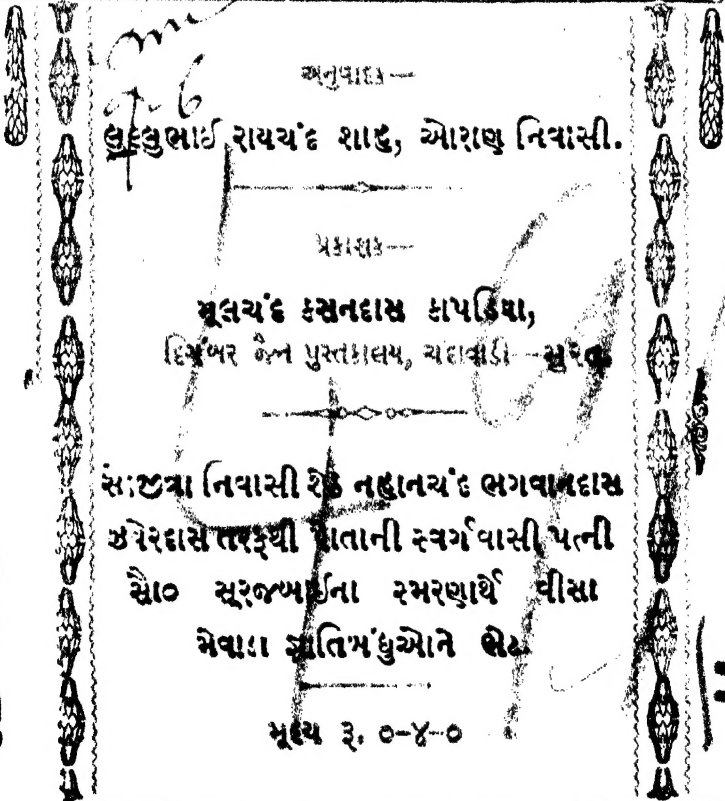 અનુવાદક—
લલ્લુભાઈ રાયચંદ શાહ, ઓરાણ નિવાસી.
પ્રકાશક—
મૂલચંદ કસનદાસ કાપડિયા,
દિગંબર જૈન પુસ્તકાલય, ચંદાવાડી—સૂરત.
સોજીત્રા નિવાસી શેઠ નહાનચંદ ભગવાનદાસ
ઝવેરદાસ તરફથી પોતાની સ્વર્ગવાસી પત્ની
સૌ૦ સૂરજબાઈના સ્મરણાર્થે વીસા
મેવાડા જ્ઞાતિબંધુઓને ભેટ.
મૂલ્ય રૂ. ૦-૪-૦